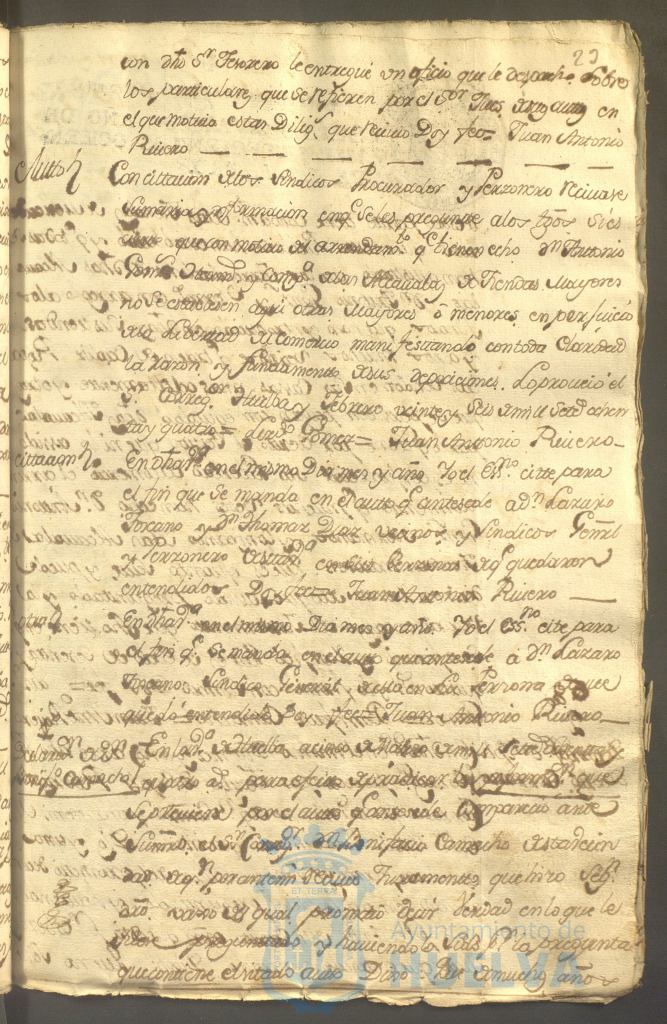 23
con dho Sr Tesorero le entregué un oficio que le despacho sobre
los particulares que se refieren por el Sor Juez en
el que motiva estas Diligs que recivio Doy fee= Juan Antonio
Rivero
Auto
Con cittacion de los Sindicos Procurador y Perzonero recivase
Sumaria Ynformacion en qe se les pregunte a los tgos si es
que con motivo del arrendamto qe tienen echo Dn Antonio
Gomez y Compa de las Alcavalas de Tiendas Mayores
no se establesen aqui otras Mayores o menores en perjuicio
de la Livertad del Comercio manifestando con toda Claridad
la razon y fundamento de sus deposiciones. Lo proveió el
Sr Correg. Huelba y Febrero veinte y seis de mil Setes ochen
ta y quatro = Gomez = Juan Antonio Rivero
Cittacion
En dha Va en el mismo Dia mes y año Yo el Essno citte para
el fin que se manda en el auto qe antesede a Dn Lazaro
Toscano y Dn Thomas Diaz vecinos y Sindicos Genrl
y Perzonero de esta Va en sus Perzonas de qe quedaron
entendidos Doy fee= Juan Antonio Rivero
otra
En dha Va en el mismo Dia mes y año Yo el Essno cite para
el fin qe se manda en el auto que antesede a Dn Lazaro
Toscano Sindico General de ella en su Perzona de que
quedó entendido Doy fee= Juan Antonio Rivero
Declaran de Dn
Bonifo Camacho
En la Va de Huelba a de Marzo de mil Sets ochenta y
quatro as para efecto de practicar la que
se previene por el auto qe antesede Comparecio ante
Su mrd. el Sr Corregr Dn Bonifacio Camacho de esta vecin
dad de qn por antemi recivio Juramento que hizo Segn
dro vajo del qual prometió decir Verdad en lo que le
fuere preguntado y haviendolo Sido pr la pregunta
que contiene el citado auto Dixo: Que de muchos años
ET TERRÆ
Ayuntamiento de
HUELVA